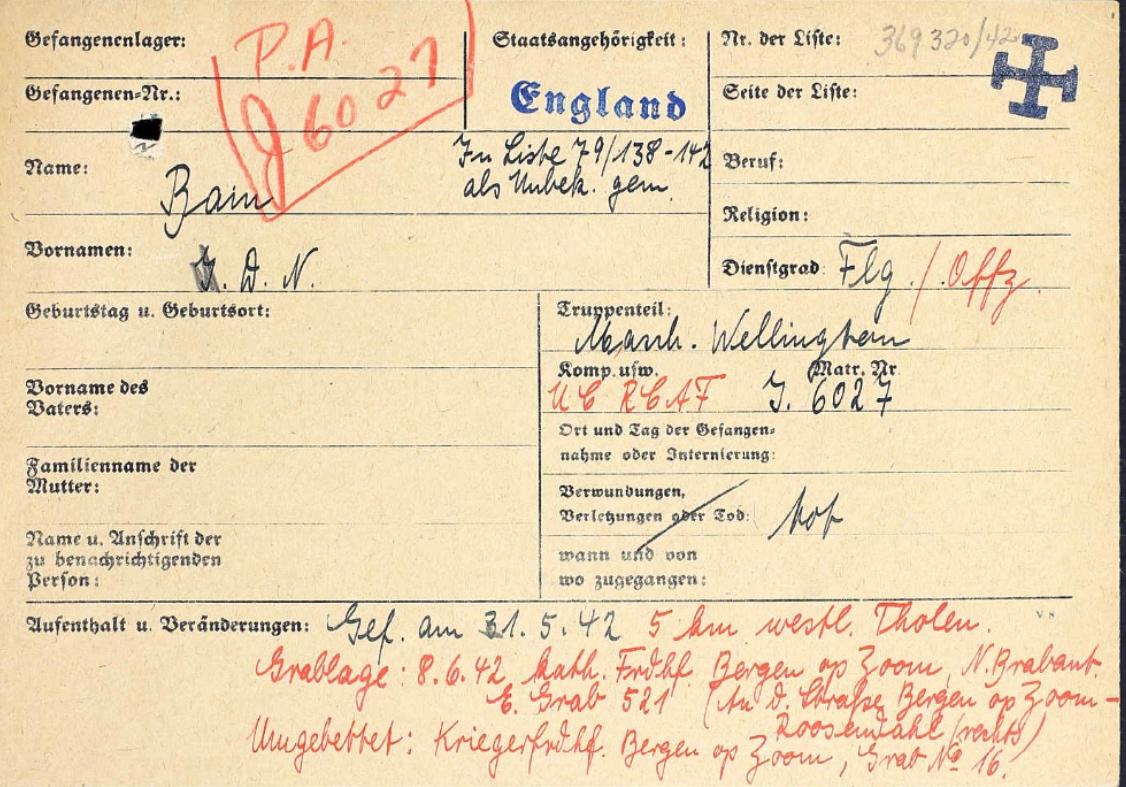 Gefangenenlager:
P.A.
Staatsangehörigkeit:
Nr. der Liste: 369320/42
Gefangenen-Nr.:
J 6027
England
Seite der Liste:
Name: Bain
In Liste 79/138-142
als Unbek. gem.
Beruf:
Religion:
Vornamen: J. D. N.
Dienstgrad: Flg. / Offz.
Geburtstag u. Geburtsort:
Truppenteil:
Wellington
Vorname des
Vaters:
Komp. usw. Matr. Nr.
RCAF J. 6027
Ort und Tag der Gefangen-
nahme oder Internierung:
Familienname der
Mutter:
Verwundungen,
Verletzungen oder Tod: tot
Name u. Anschrift der
zu benachrichtigenden
Person:
wann und von
wo zugegangen:
Aufenthalt u. Veränderungen: Gef. am 31.5.42 5 km westl. Tholen.
Grablage: 8.6.42 kath. Frdhf. Bergen op Zoom, N. Brabant.
E. Grab 521 (An d. Straße Bergen op Zoom-
Roosendahl (rechts)
Umgebettet: Kriegerfrdhf. Bergen op Zoom, Grab No 16.